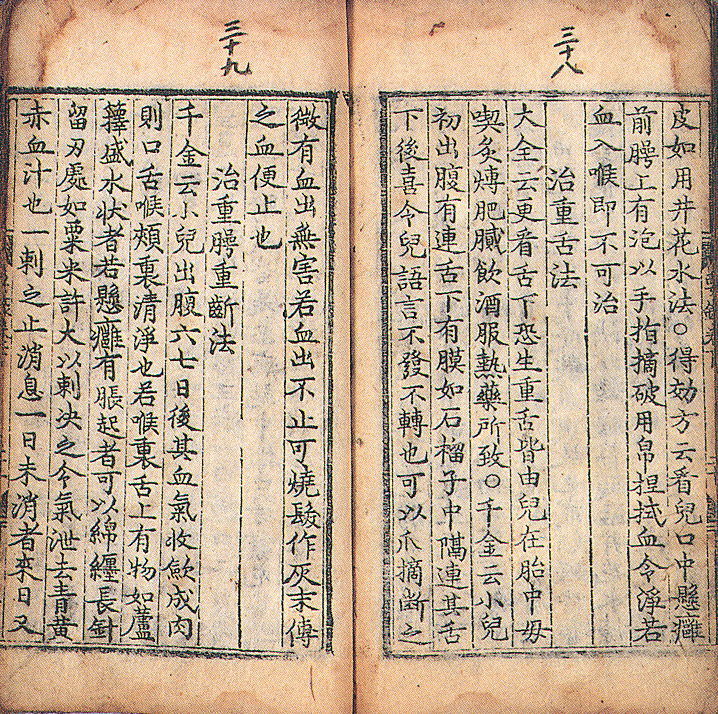 三十八
皮如用井花水法○得効方云看兒口中懸癰
前腭上有泡以手指摘破用帛揑拭血令淨若
血入喉即不可治
治重舌法
大全云更看舌下恐生重舌皆由兒在胎中母
喫炙煿肥膩飲酒服熱藥所致○千金云小兒
初出腹有連舌下有膜如石榴子中隔連其舌
下後喜令兒語言不發不轉也可以爪摘斷之
三十九
微有血出無害若血出不止可燒髮作灰末傅
之血便止也
治重腭重齗法
千金云小兒出腹六七日後其血氣收歛成肉
則口舌喉頰裏清淨也若喉裏舌上有物如蘆
籜盛水狀者若懸癰有脹起者可以綿纏長針
留刃處如粟米許大以刺决之令氣泄去青黃
赤血汁也一刺之止消息一日未消者來日又